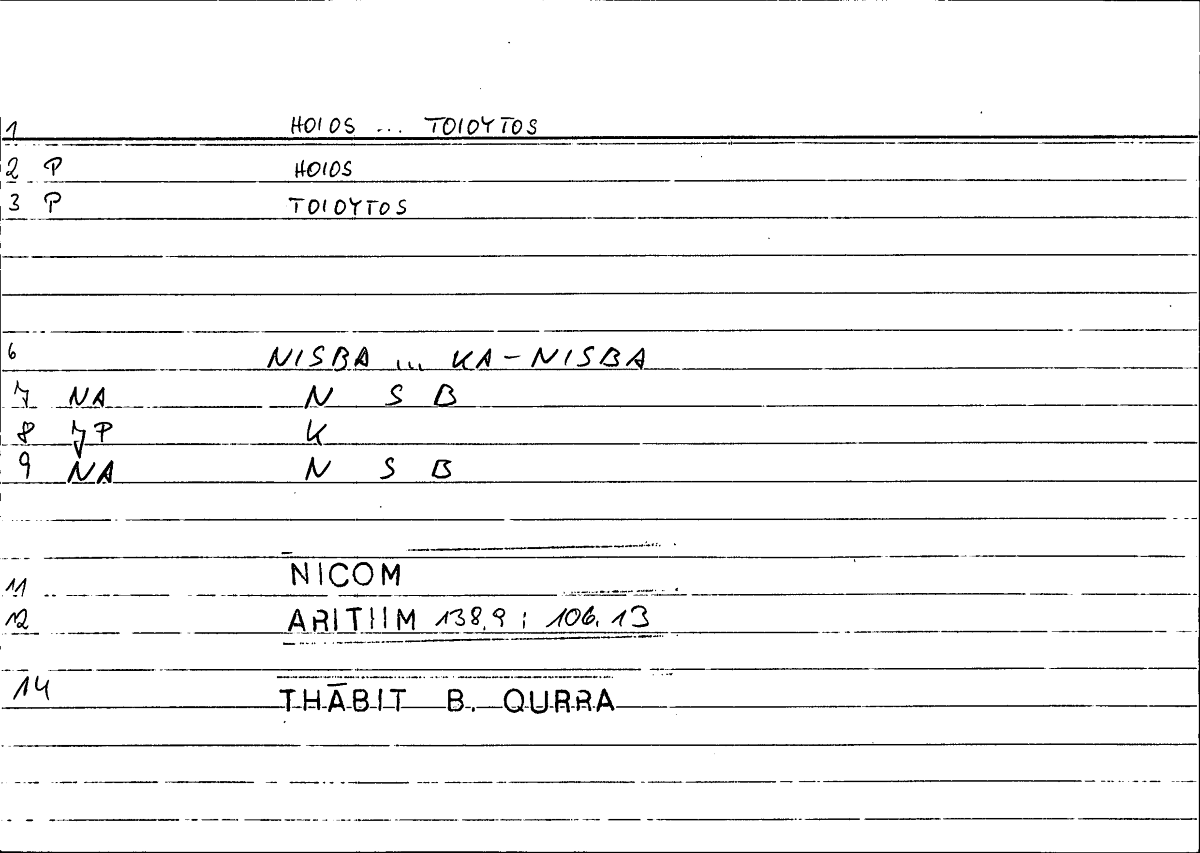 1 HOIOS ... TOIOYTOS
2 P HOIOS
3 P TOIOYTOS
6 NISBA ... KA-NISBA
7 NA N S B
8 P K
9 NA N S B
11 NICOM
12 ARITIIM 138,9 ; 106.13
14 THĀBIT B. QURRA